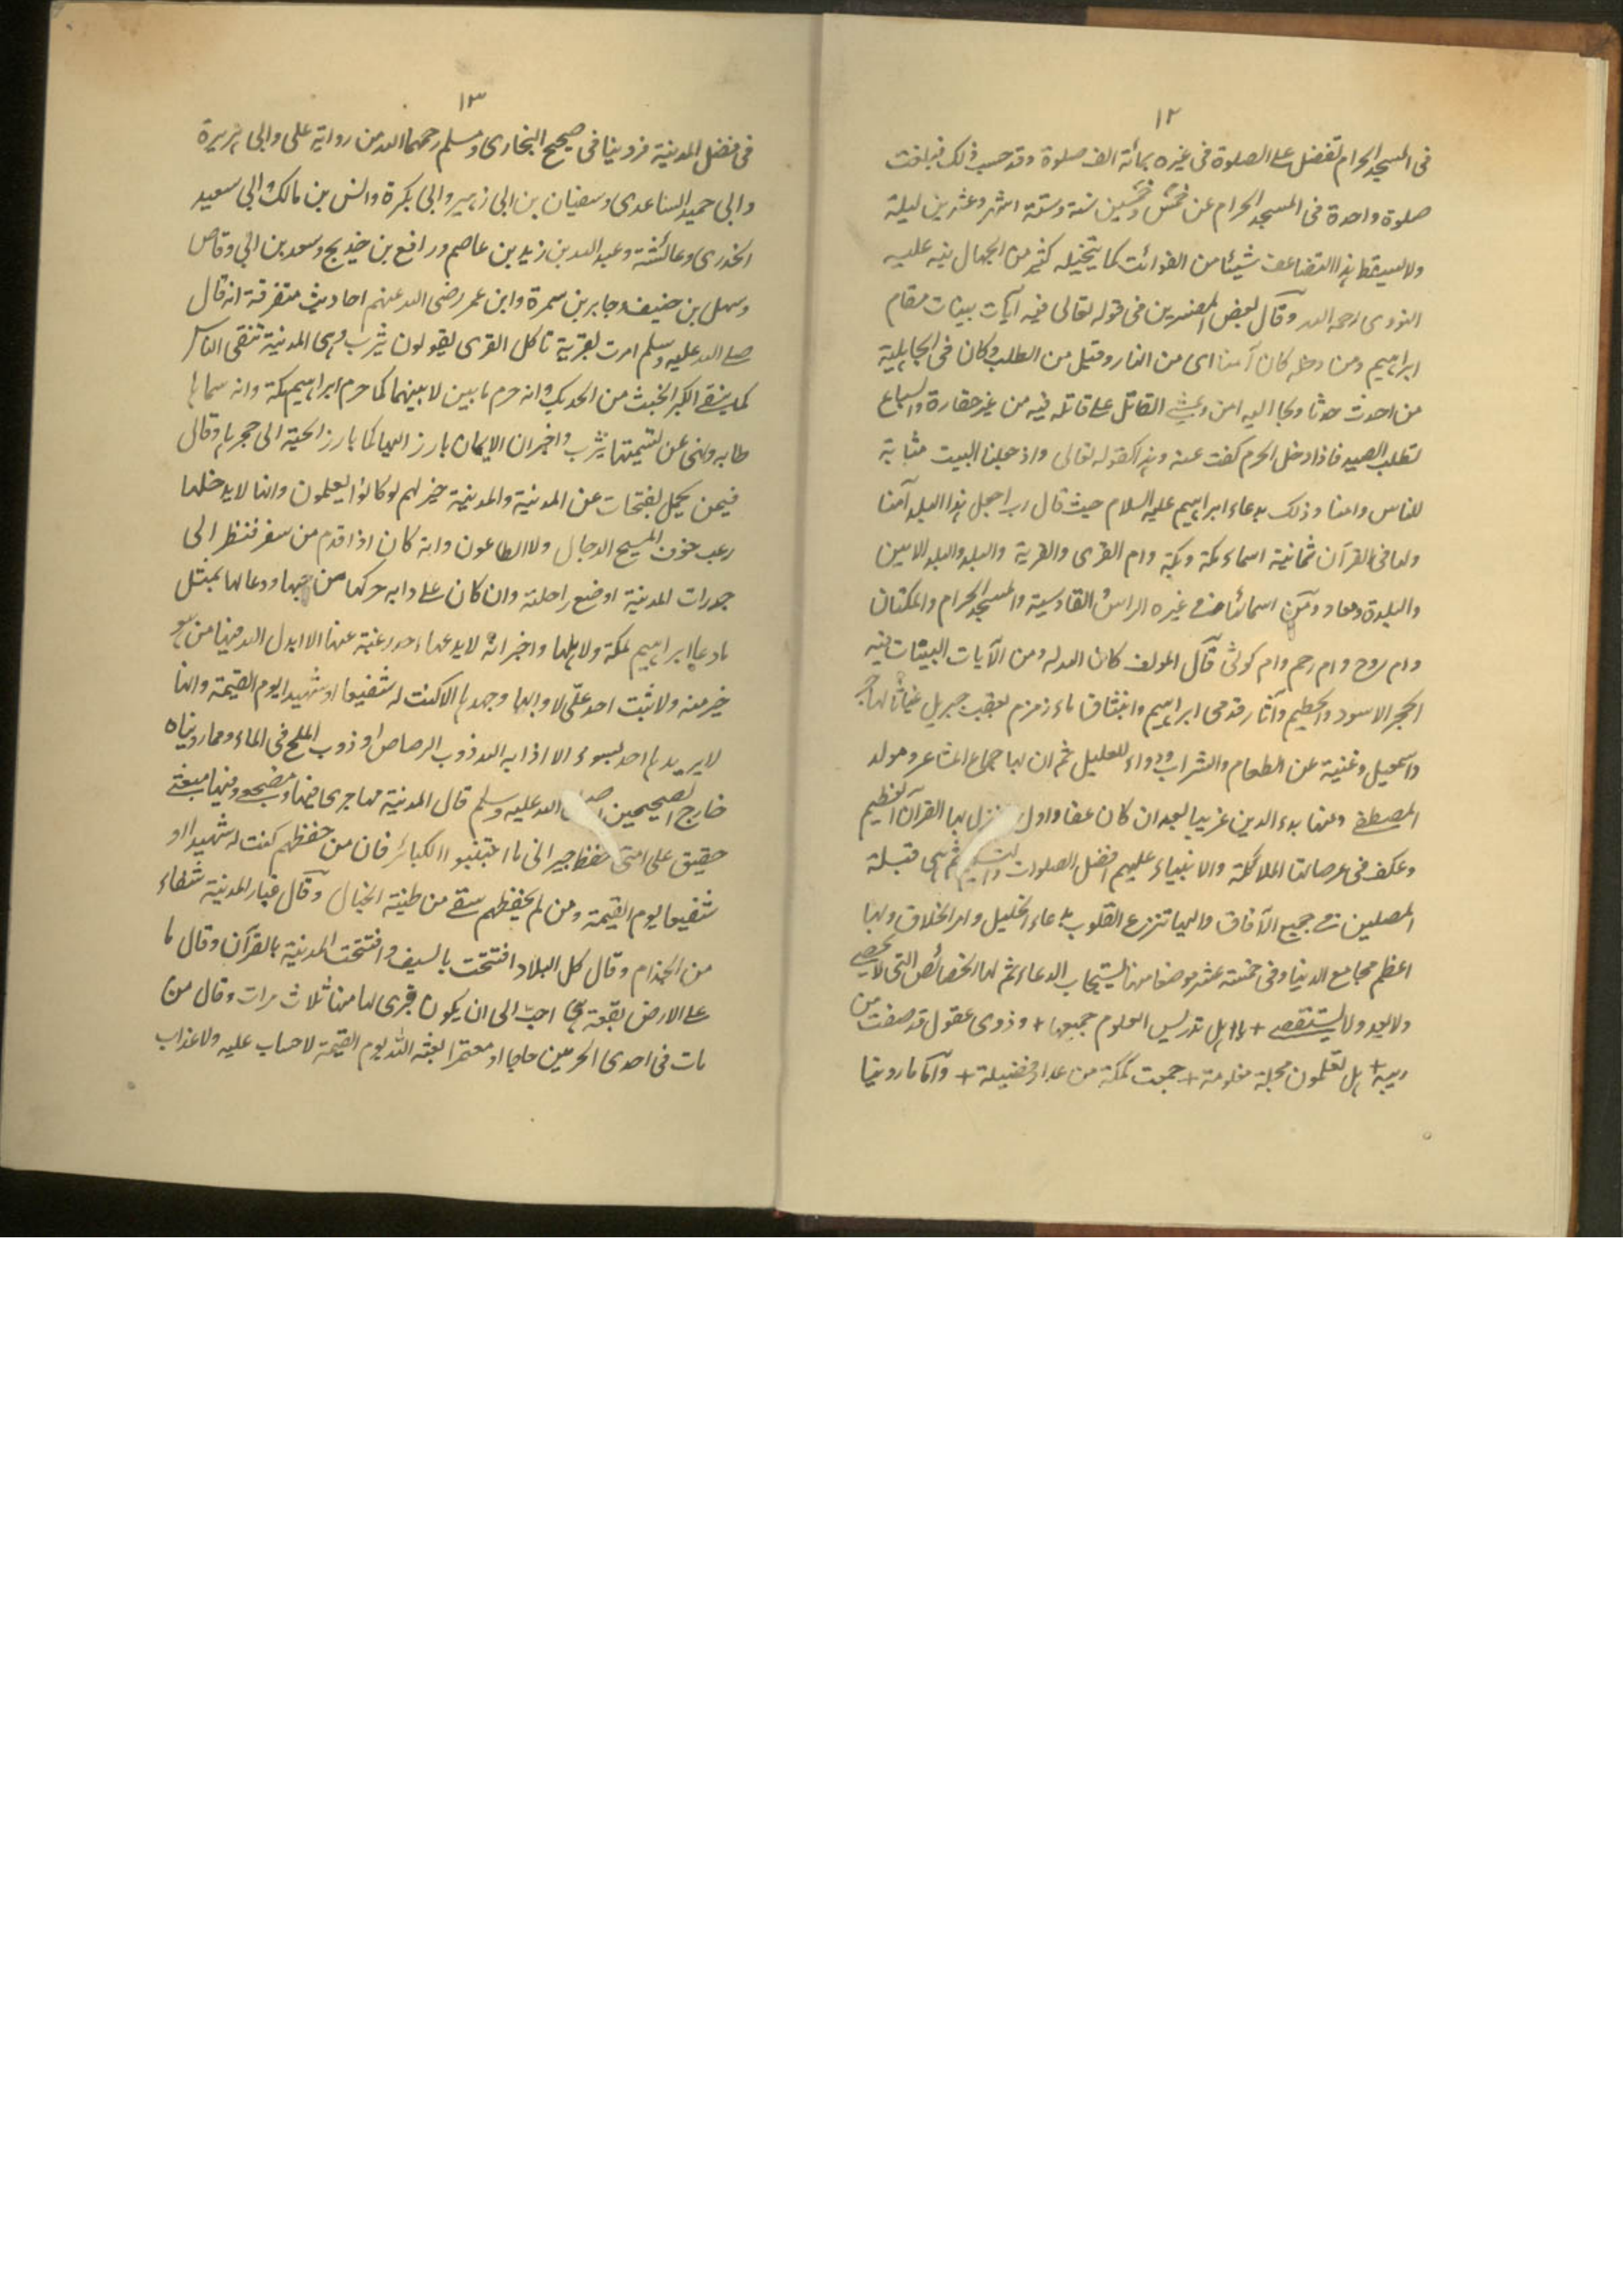 ١٢
فى المسجد الحرام تفضل على الصلوة فى غيره بمائة الف صلوة وقد حسب ذلك فبلغت
صلوة واحدة فى المسجد الحرام عن خمس وخمسين سنة وستة اشهر وعشرين ليلة
ولا يسقط هذا التضاعف شيئا من الفوائت كما يتخيله كثير من الجهال نبه عليه
النووى رحمه الله وقال بعض المفسرين فى قوله تعالى فيه آيات بينات مقام
ابراهيم ومن دخله كان آمنا اى من النار وقيل من الطلب وكان فى الجاهلية
من احدث حدثا ولجا اليه امن ويمشى القاتل على قاتله فيه من غير حقارة والسباع
تطلب الصيد فاذا دخل الحرم كفت عنه وهذا كقوله تعالى واذ جعلنا البيت مثابة
للناس وامنا وذلك بدعاء ابراهيم عليه السلام حيث قال رب اجعل هذا البلد آمنا
ولها فى القرآن ثمانية اسماء مكة وبكة وام القرى والقرية والبلد والبلد الامين
والبلدة ومعاد ومن اسمائها فى غيره الراس والقادسية والمسجد الحرام والمكتان
وام روح وام رحم وام كوثى قال المولف كان الله له ومن الآيات البينات فيه
الحجر الاسود والحطيم وآثار قدمى ابراهيم وانبثاق ماء زمزم بعقب جبريل غياثا لهاجر
واسمعيل وغنية عن الطعام والشراب ودواء للعليل ثم ان بها جماع المشاعر ومولد
المصطفى ومنها بدء الدين غريبا بعد ان كان عفا واول نزل بها القرآن العظيم
وعكف فى عرصاتها الملائكة والانبياء عليهم افضل الصلوات والتسليم ثم هى قبلة
المصلين فى جميع الآفاق واليها تنزع القلوب بدعاء الخليل وامر الخلاق وبها
اعظم مجامع الدنيا وفى خمسة عشر موضعا منها يستجاب الدعاء ثم لها الخصائص التى لا تحصى
ولا تعد ولا تستقصى + يا اهل تدريس العلوم جميعها + وذوى عقول قد صفت من
ريبه + هل تعلمون محلة معلومة + جمعت كمكة من عداد فضيلة + وآما ما روينا
١٣
فى فضل المدينة فروينا فى صحيح البخارى ومسلم رحمهما الله من رواية على وابى هريرة
وابى حميد الساعدى وسفيان بن ابى زهير وابى بكرة وانس بن مالك وابى سعيد
الخدرى وعائشة وعبد الله بن زيد بن عاصم ورافع بن خديج وسعد بن ابى وقاص
وسهل بن حنيف وجابر بن سمرة وابن عمر رضى الله عنهم احاديث متفرقة انه قال
صلى الله عليه وسلم امرت بقرية تاكل القرى يقولون يثرب وهى المدينة تنقى الناس
كما ينقى الكير الخبث من الحديد وانه حرم ما بين لابتيها كما حرم ابراهيم مكة وانه سماها
طابه ونهى عن تسميتها يثرب واخبر ان الايمان يارز اليها كما يارز الحية الى جحرها وقال
فيمن يحمل بفتحات عن المدينة والمدينة خير لهم لو كانوا يعلمون وانها لا يدخلها
رعب خوف المسيح الدجال ولا الطاعون وانه كان اذا قدم من سفر فنظر الى
جدرات المدينة اوضع راحلته وان كان على دابه حركها من حبها ودعا لها بمثل
ما دعا ابراهيم لمكة ولاهلها واخبر انه لا يدعها احد رغبة عنها الا ابدل الله فيها من هو
خير منه ولا ثبت احد على لاوائها وجهدها الا كنت له شفيعا او شهيدا يوم القيمة وانها
لا يريدها احد بسوء الا اذابه الله ذوب الرصاص او ذوب الملح فى الماء ومما رويناه
خارج الصحيحين الله عليه وسلم قال المدينة مهاجرى فيها ومضجعى ومنها مبعثى
حقيق على امتى حفظ جيرانى ما اجتنبوا الكبائر فان من حفظهم كنت له شهيدا او
شفيعا يوم القيمة ومن لم يحفظهم سقى من طينة الخبال وقال غبار المدينة شفاء
من الجذام وقال كل البلاد افتتحت بالسيف وافتتحت المدينة بالقرآن وقال ما
على الارض بقعة هى احب الى ان يكون قبرى بها منها ثلاث مرات وقال من
مات فى احدى الحرمين حاجا او معتمرا بعثه الله يوم القيمة لا حساب عليه ولا عذاب